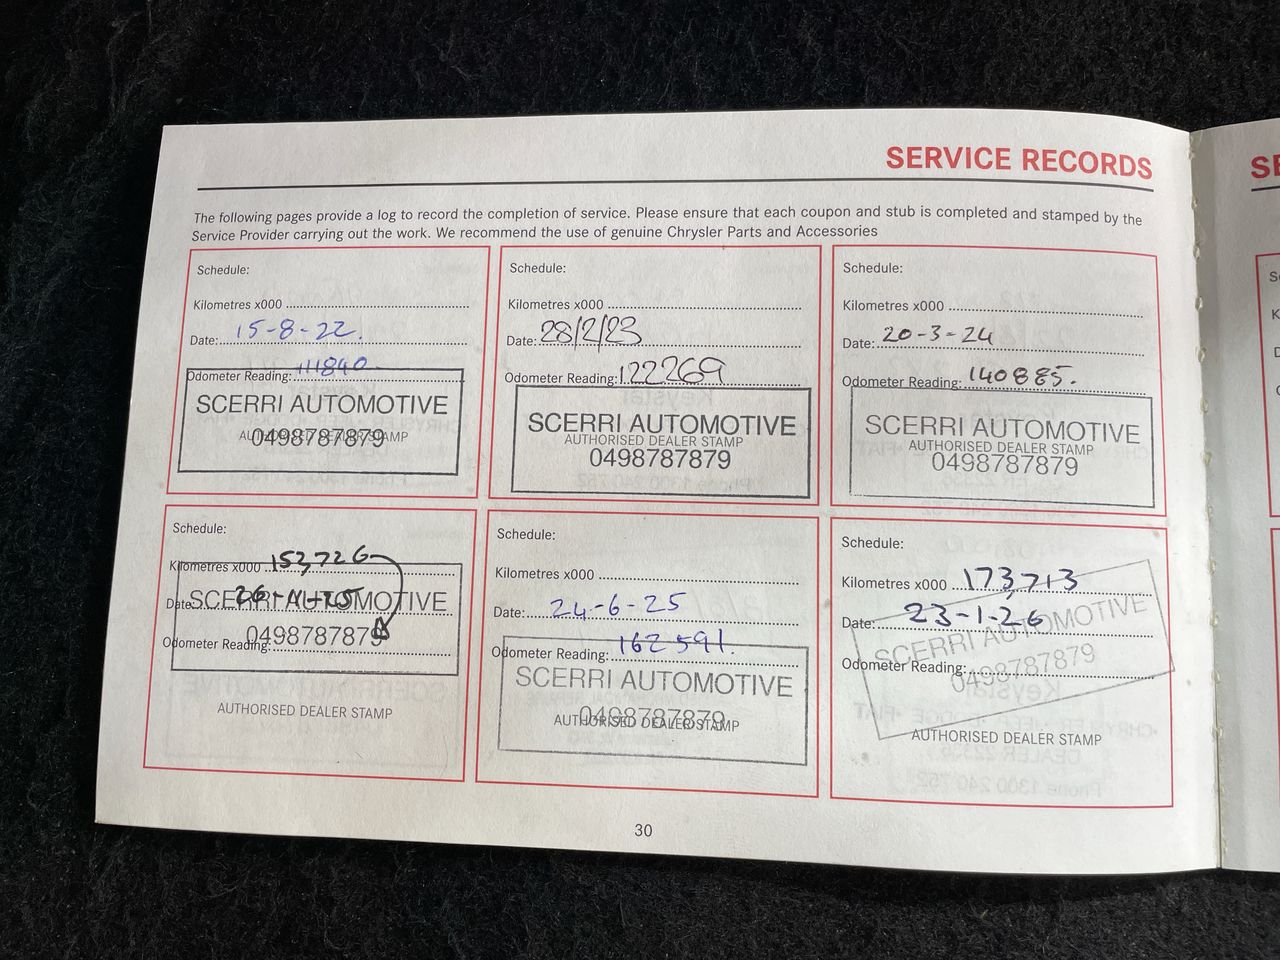 SERVICE RECORDS
The following pages provide a log to record the completion of service. Please ensure that each coupon and stub is completed and stamped by the
Service Provider carrying out the work. We recommend the use of genuine Chrysler Parts and Accessories
Schedule:
Kilometres x000
Date: 15-8-22.
Odometer Reading: 111840
SCERRI AUTOMOTIVE
AUTHORISED DEALER STAMP
0498787879
Schedule:
Kilometres x000
Date: 28/2/23
Odometer Reading: 122269
SCERRI AUTOMOTIVE
AUTHORISED DEALER STAMP
0498787879
Schedule:
Kilometres x000
Date: 20-3-24
Odometer Reading: 140885.
SCERRI AUTOMOTIVE
AUTHORISED DEALER STAMP
0498787879
Schedule:
Kilometres x000 153,726
Date:
SCERRI AUTOMOTIVE
0498787879
Odometer Reading:
AUTHORISED DEALER STAMP
Schedule:
Kilometres x000
Date: 24-6-25
Odometer Reading: 162591.
SCERRI AUTOMOTIVE
0498787879
AUTHORISED DEALER STAMP
Schedule:
Kilometres x000 173,713
Date: 23-1-26
SCERRI AUTOMOTIVE
Odometer Reading:
0498787879
AUTHORISED DEALER STAMP
30